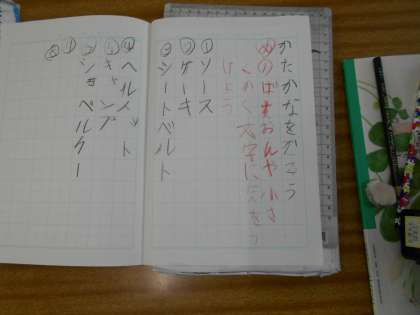 かたかなをかこう
めのばすおんや小さ
くかく文字に気をつ
けよう
①ソース
②ケーキ
③シートベルト
④ヘルメット
⑤キャンプ
シャベルカー